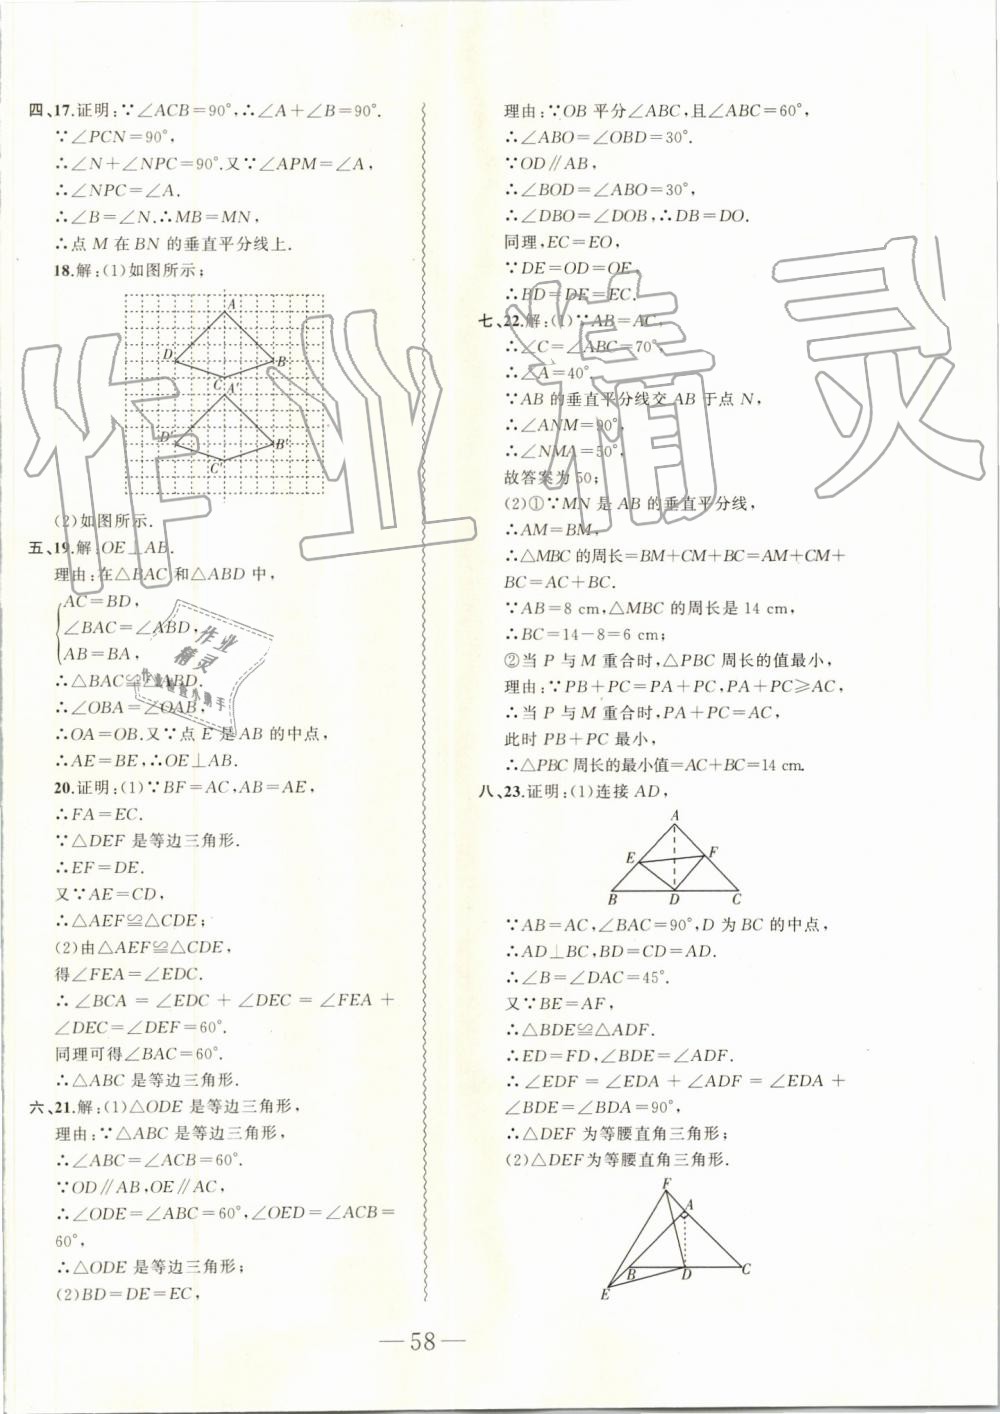 四、17.证明:∵∠ACB=90°,∴∠A+∠B=90°.
∵∠PCN=90°,
∴∠N+∠NPC=90°.又∵∠APM=∠A,
∴∠NPC=∠A.
∴∠B=∠N.∴MB=MN,
∴点 M 在 BN 的垂直平分线上.
18.解:(1)如图所示;
A
D
B
C
A'
D'
B'
C'
(2)如图所示.
五、19.解:OE⊥AB.
理由:在△BAC 和△ABD 中,
AC=BD,
∠BAC=∠ABD,
AB=BA,
∴△BAC≌△ABD.
∴∠OBA=∠OAB,
∴OA=OB.又∵点 E 是 AB 的中点,
∴AE=BE,∴OE⊥AB.
20.证明:(1)∵BF=AC,AB=AE,
∴FA=EC.
∵△DEF 是等边三角形.
∴EF=DE.
又∵AE=CD,
∴△AEF≌△CDE;
(2)由△AEF≌△CDE,
得∠FEA=∠EDC.
∴∠BCA=∠EDC+∠DEC=∠FEA+
∠DEC=∠DEF=60°.
同理可得∠BAC=60°.
∴△ABC 是等边三角形.
六、21.解:(1)△ODE 是等边三角形,
理由:∵△ABC 是等边三角形,
∴∠ABC=∠ACB=60°.
∵OD∥AB,OE∥AC,
∴∠ODE=∠ABC=60°,∠OED=∠ACB=
60°,
∴△ODE 是等边三角形;
(2)BD=DE=EC,
理由:∵OB 平分∠ABC,且∠ABC=60°,
∴∠ABO=∠OBD=30°.
∵OD∥AB,
∴∠BOD=∠ABO=30°,
∴∠DBO=∠DOB,∴DB=DO.
同理,EC=EO,
∵DE=OD=OE,
∴BD=DE=EC.
七、22.解:(1)∵AB=AC,
∴∠C=∠ABC=70°,
∴∠A=40°,
∵AB 的垂直平分线交 AB 于点 N,
∴∠ANM=90°,
∴∠NMA=50°,
故答案为 50;
(2)①∵MN 是 AB 的垂直平分线,
∴AM=BM,
∴△MBC 的周长=BM+CM+BC=AM+CM+
BC=AC+BC.
∵AB=8 cm,△MBC 的周长是 14 cm,
∴BC=14-8=6 cm;
②当 P 与 M 重合时,△PBC 周长的值最小,
理由:∵PB+PC=PA+PC,PA+PC⩾AC,
∴当 P 与 M 重合时,PA+PC=AC,
此时 PB+PC 最小,
∴△PBC 周长的最小值=AC+BC=14 cm.
八、23.证明:(1)连接 AD,
A
E
F
B
D
C
∵AB=AC,∠BAC=90°,D 为 BC 的中点,
∴AD⊥BC,BD=CD=AD.
∴∠B=∠DAC=45°.
又∵BE=AF,
∴△BDE≌△ADF.
∴ED=FD,∠BDE=∠ADF.
∴∠EDF=∠EDA+∠ADF=∠EDA+
∠BDE=∠BDA=90°,
∴△DEF 为等腰直角三角形;
(2)△DEF为等腰直角三角形.
F
A
B
D
C
E
— 58 —
作业精灵
作业
精灵
作业检查小助手